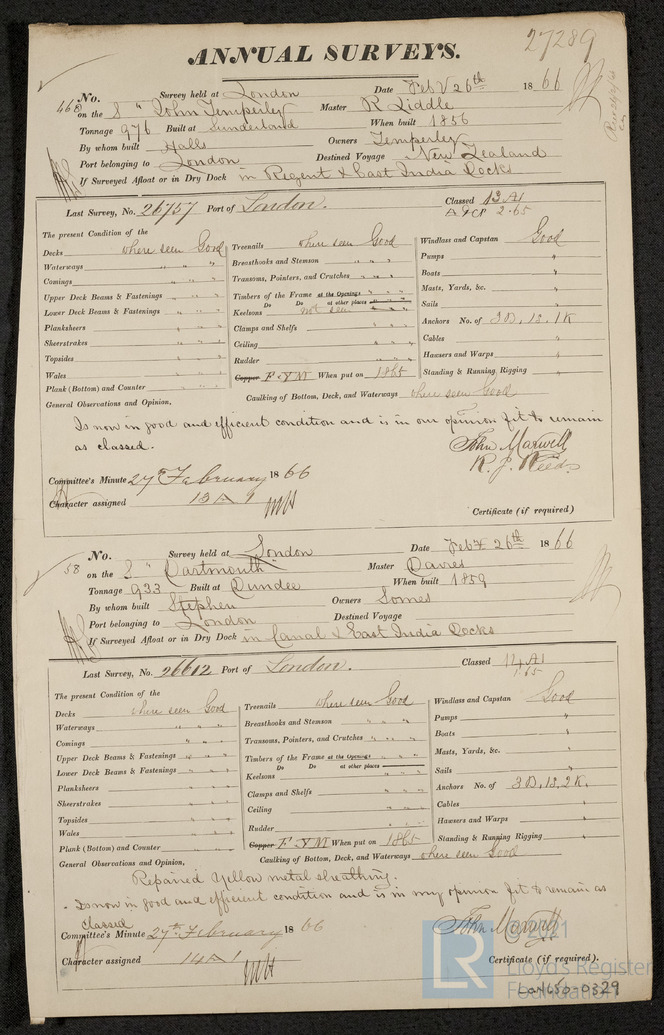 27289
ANNUAL SURVEYS.
No. Survey held at London Date Feby 26th 1866
468 on the S "John Temperley" Master R Liddle
Tonnage 976 Built at Sunderland When built 1856
By whom built Halls Owners Temperley
Port belonging to London Destined Voyage New Zealand
If Surveyed Afloat or in Dry Dock in Regent & East India Docks
Last Survey, No. 26757 Port of London. Classed 13 A1
A&CP 2.65
The present Condition of the
Decks where seen Good Treenails where seen Good Windlass and Capstan Good
Waterways " " " Breasthooks and Stemson " " " Pumps "
Comings " " " Transoms, Pointers, and Crutches " " " Boats "
Upper Deck Beams & Fastenings " " " Timbers of the Frame at the Openings " " " Masts, Yards, &c. "
Do Do at other places
Lower Deck Beams & Fastenings " " " Keelsons not seen " " " Sails "
Planksheers " " " Clamps and Shelfs " " " Anchors No. of 3B, 1S, 1K
Sheerstrakes " " " Ceiling " " " Cables "
Topsides " " " Rudder " " " Hawsers and Warps "
Wales " " " Copper F & YM When put on 1865 Standing & Running Rigging "
Plank (Bottom) and Counter " " " Caulking of Bottom, Deck, and Waterways where seen Good
General Observations and Opinion,
Is now in good and efficient condition and is in our opinion fit to remain
as classed.
John Maxwell
R. J. Reeds
Committee's Minute 27 February 1866
Character assigned 13 A 1
Certificate (if required)
No. Survey held at London Date Feby 26th 1866
58 on the S "Dartmouth" Master Davies
Tonnage 933 Built at Dundee When built 1859
By whom built Stephen Owners Somes
Port belonging to London Destined Voyage
If Surveyed Afloat or in Dry Dock in Canal & East India Docks
Last Survey, No. 26612 Port of London. Classed 14 A1
1.65
The present Condition of the
Decks where seen Good Treenails where seen Good Windlass and Capstan Good
Waterways " " " Breasthooks and Stemson " " " Pumps "
Comings " " " Transoms, Pointers, and Crutches " " " Boats "
Upper Deck Beams & Fastenings " " " Timbers of the Frame at the Openings " " " Masts, Yards, &c. "
Do Do at other places
Lower Deck Beams & Fastenings " " " Keelsons " " " Sails "
Planksheers " " " Clamps and Shelfs " " " Anchors No. of 3B, 1S, 2K.
Sheerstrakes " " " Ceiling " " " Cables "
Topsides " " " Rudder " " " Hawsers and Warps "
Wales " " " Copper F & YM When put on 1865 Standing & Running Rigging "
Plank (Bottom) and Counter " " " Caulking of Bottom, Deck, and Waterways where seen Good
General Observations and Opinion,
Repaired Yellow metal sheathing.
Is now in good and efficient condition and is in my opinion fit to remain as
classed
John Maxwell
Committee's Minute 27th February 1866
Character assigned 14 A 1
Certificate (if required).
LR
Lloyd's Register
Foundation
Lon650-0329